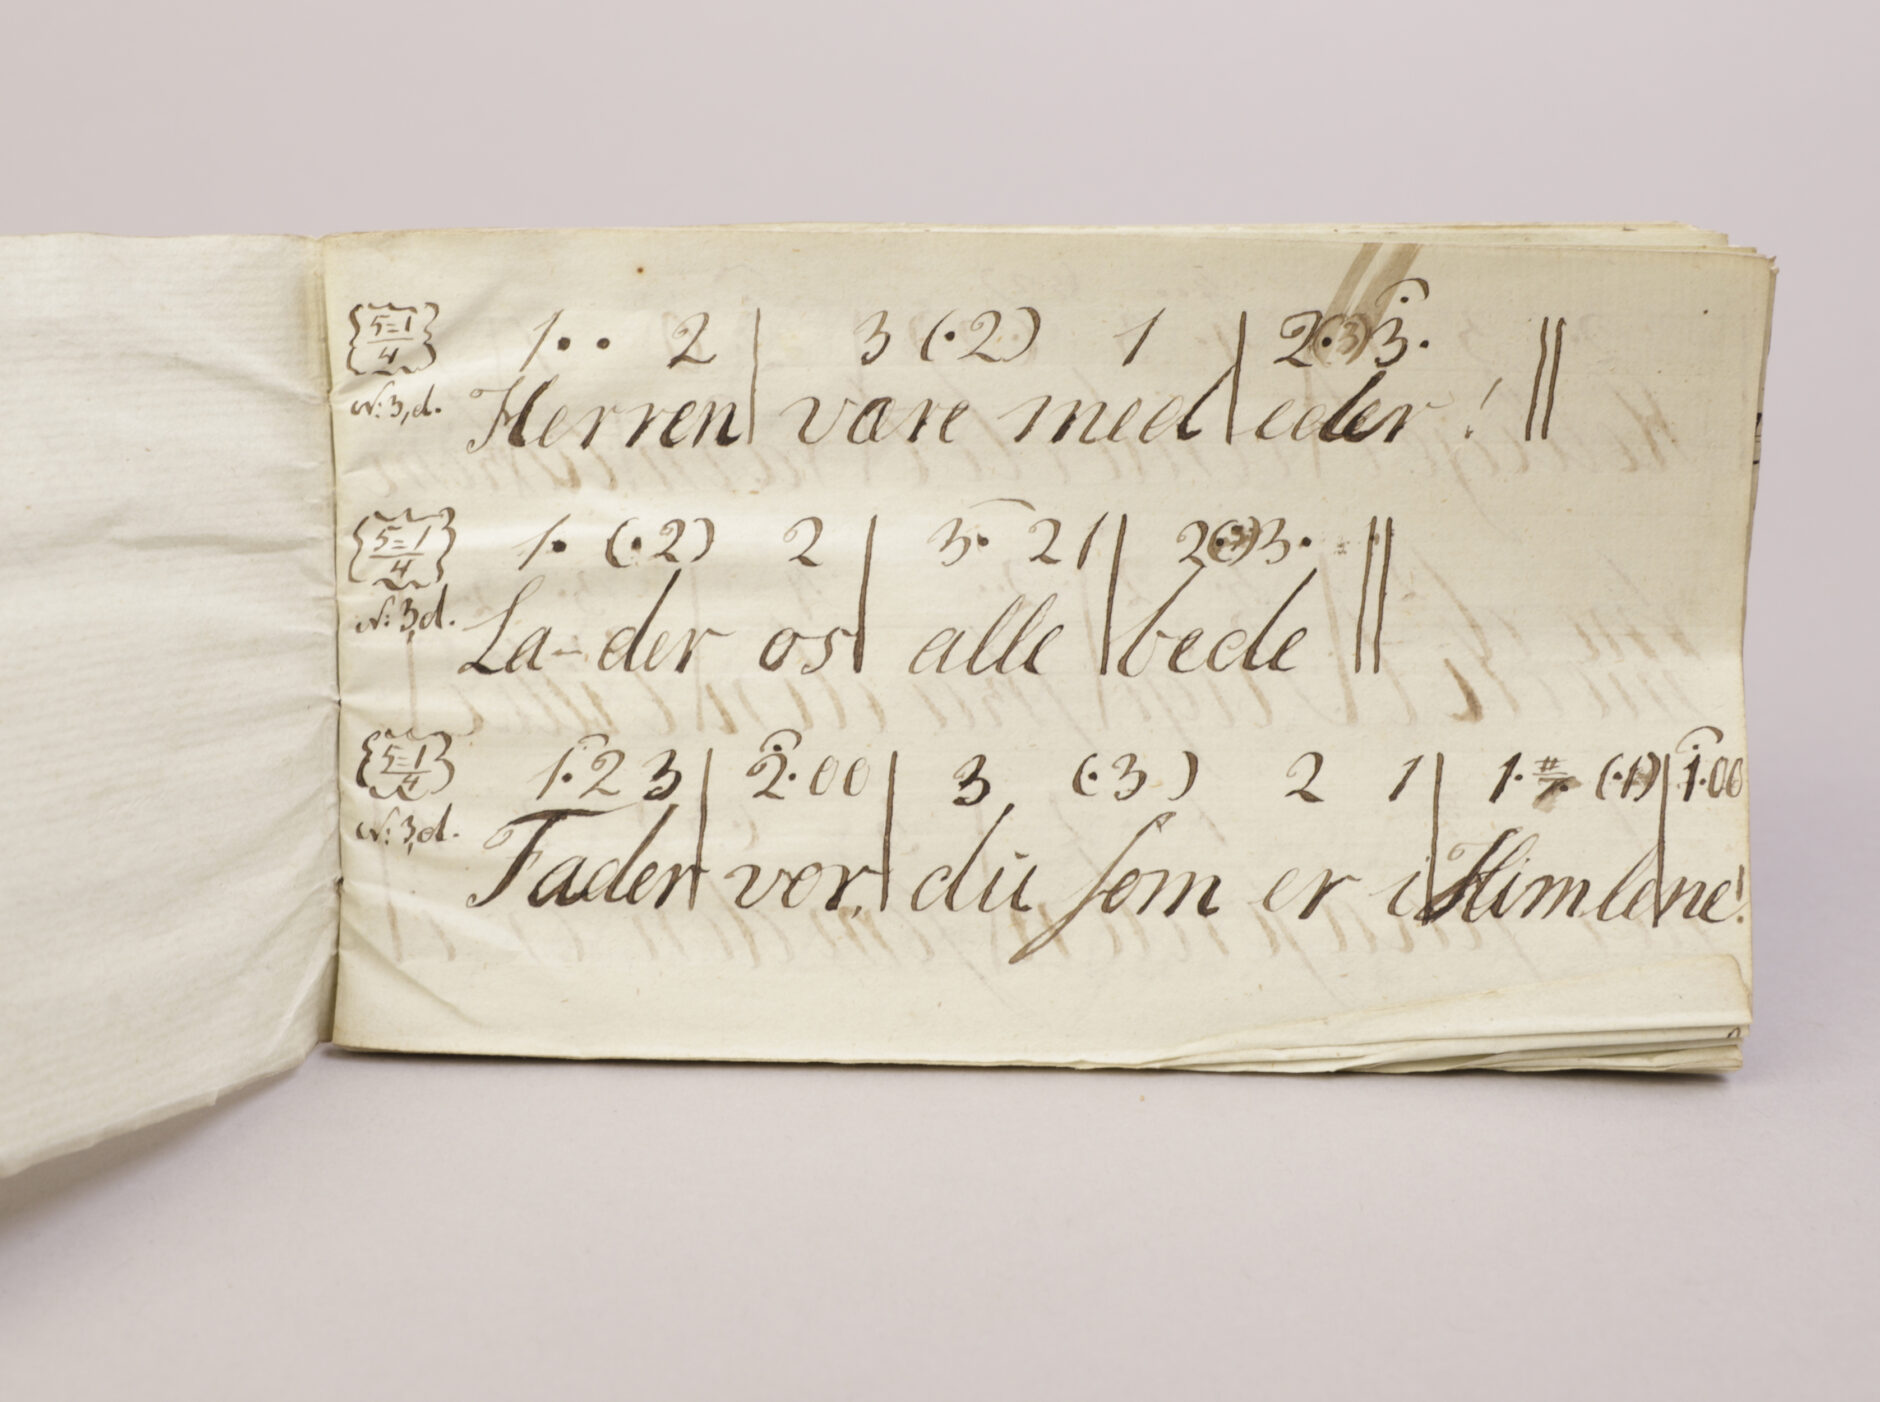 {5=1/4} 1 . . 2 | 3 (.2) 1 | 2.(3)3. ||
N: 3, d. Herren | være med | eder ! ||
{5=1/4} 1. (.2) 2 | 3. 2 1 | 2(.3)3. ||
N: 3, d. La-der os | alle | bede ||
{5=1/4} 1.2 3 | 2.00 | 3 (.3) 2 1 | 1.#7. (.1) | 1.00
N: 3, d. Fader | vor, | du som er i | Himle|ne!